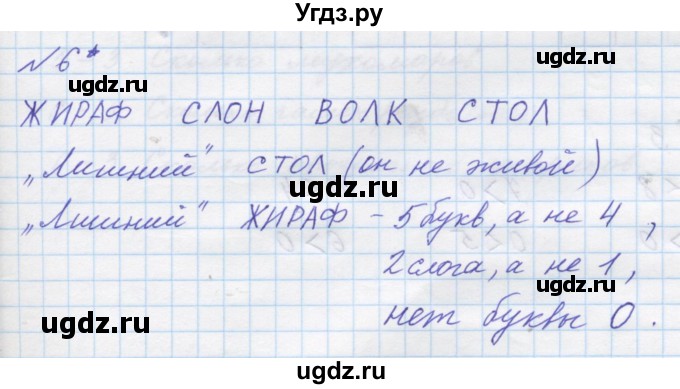 Угдз.ру
№ 6*
ugdz.ru ugdz.ru
ЖИРАФ СЛОН ВОЛК СТОЛ
„Лишний" СТОЛ (он не живой)
ugdz.ru
„Лишний" ЖИРАФ - 5 букв, а не 4,
2 слога, а не 1,
ugdz.ru ugdz.ru
нет буквы О.
ugdz.ru